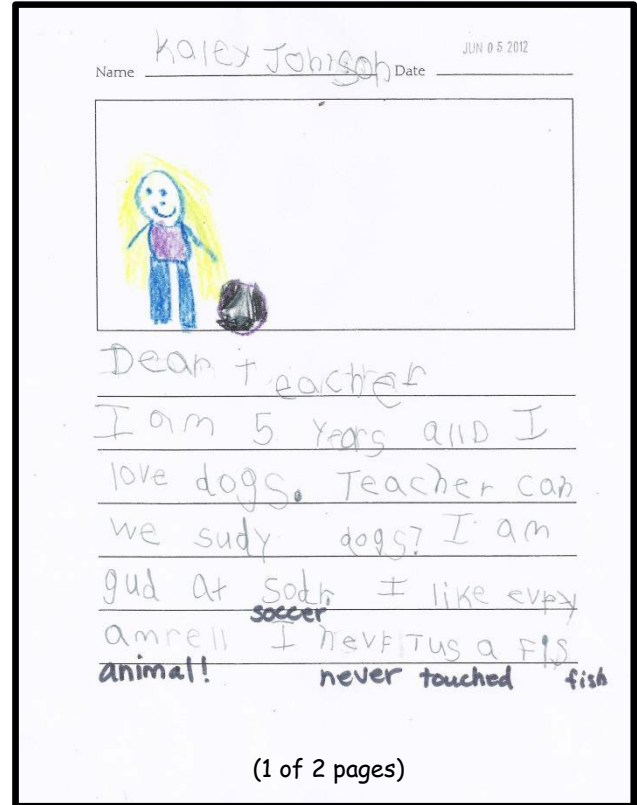 Name Kaley Johnson Date JUN 05 2012
Dear teacher
I am 5 years allD I
love dogs. Teacher can
we sudy dogs? I am
gud at sodr. I like evry
soccer
amrell I nevr Tus a FIS
animal! never touched fish
(1 of 2 pages)